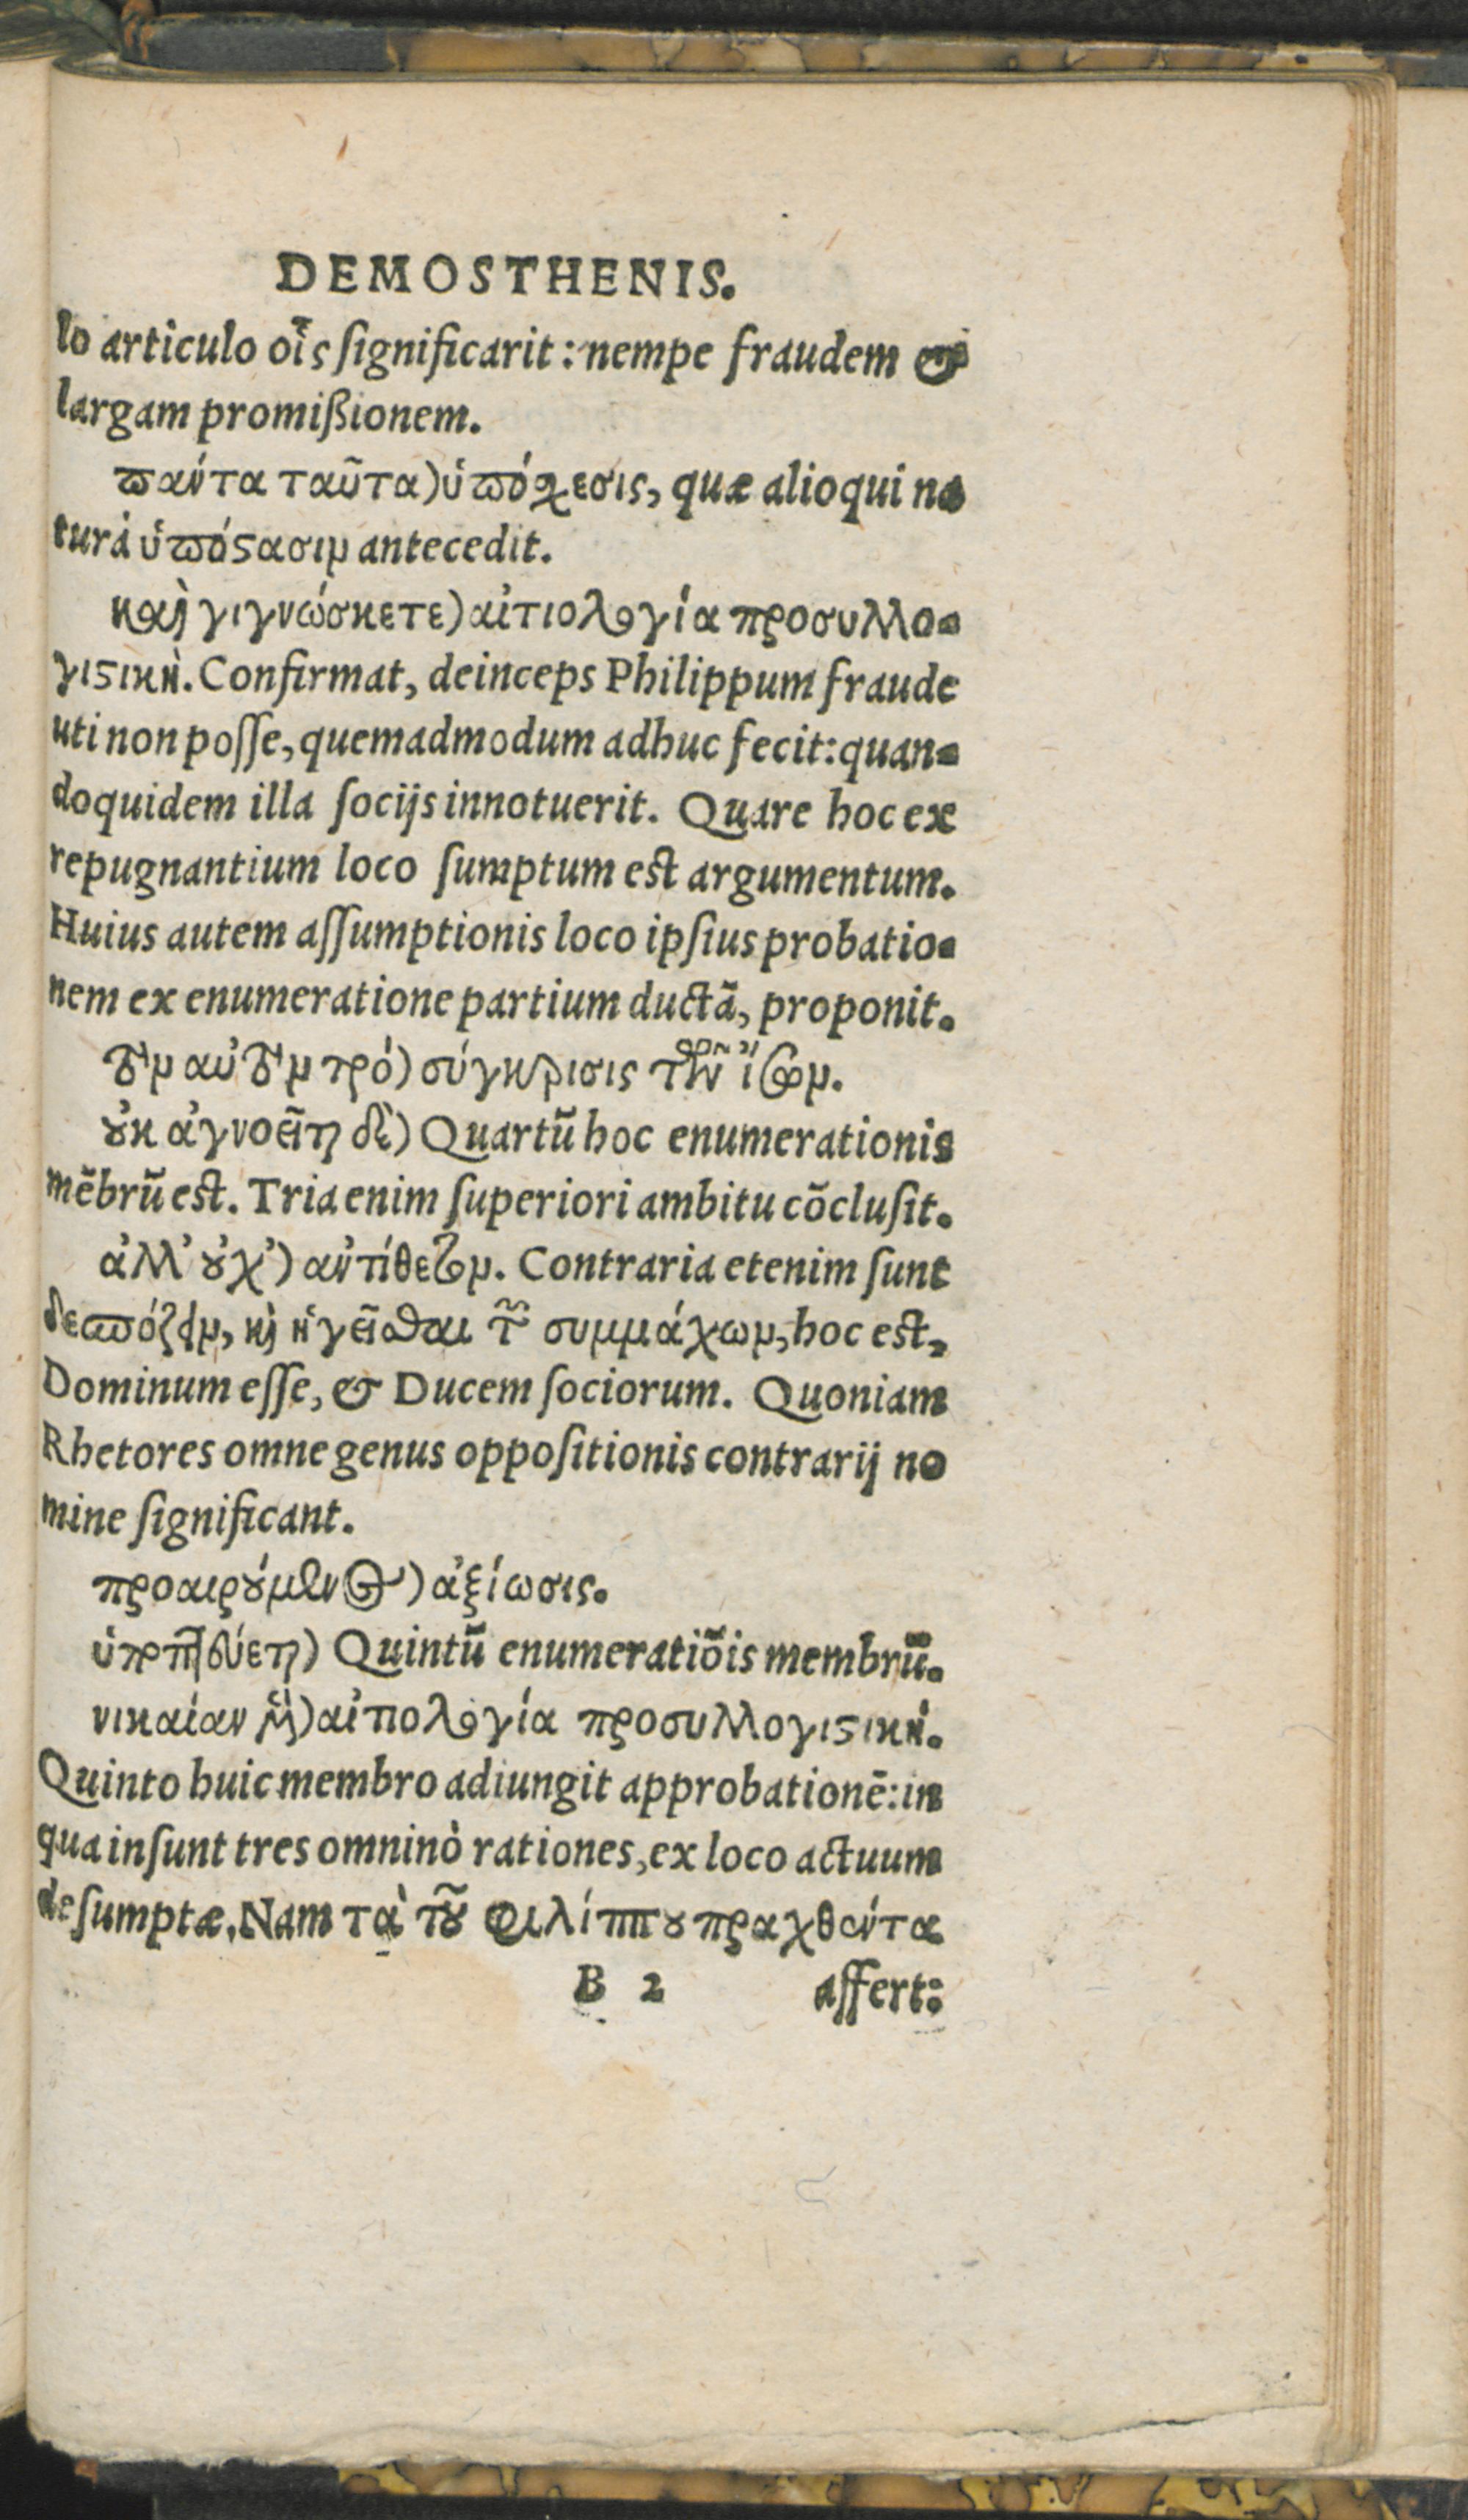 DEMOSTHENIS.
lo articulo oīs ſignificarit: nempe fraudem &
largam promißionem.
πάντα ταῦτα) ὑπόσχεσις, quæ alioqui na
turá ὑπόϛασιμ antecedit.
καὶ γιγνώσκετε) αἰτιολογία προσυλλο-
γιϛικὴ. Confirmat, deinceps Philippum fraude
uti non poſſe, quemadmodum adhuc fecit: quan-
doquidem illa ſocijs innotuerit. Quare hoc ex
repugnantium loco ſumptum est argumentum.
Huius autem aſſumptionis loco ipſius probatio-
nem ex enumeratione partium ductã, proponit.
σύγκρισις
ȣ̓κ ἀγνοεῖτε δὲ) Quartũ hoc enumerationis
mẽbrũ est. Tria enim ſuperiori ambitu cõcluſit.
ἀλλ' ȣ̓χ') ἀντίθεσιμ. Contraria etenim ſunt
δεσπόζειμ, κὶ ἡγεῖσθαι τῶ συμμάχωμ, hoc est,
Dominum eſſe, & Ducem ſociorum. Quoniam
Rhetores omne genus oppoſitionis contrarij no
mine ſignificant.
προαιρȣ́μενος) ἀξίωσις.
Quintũ enumeratiõis membrũ.
αἰτιολογία προσυλλογιϛική.
Quinto huic membro adiungit approbationẽ: in
qua inſunt tres omninò rationes, ex loco actuum
deſumptæ. Nam τὰ τȣ͂ Φιλίππȣ πραχθέντα
B 2 affert: